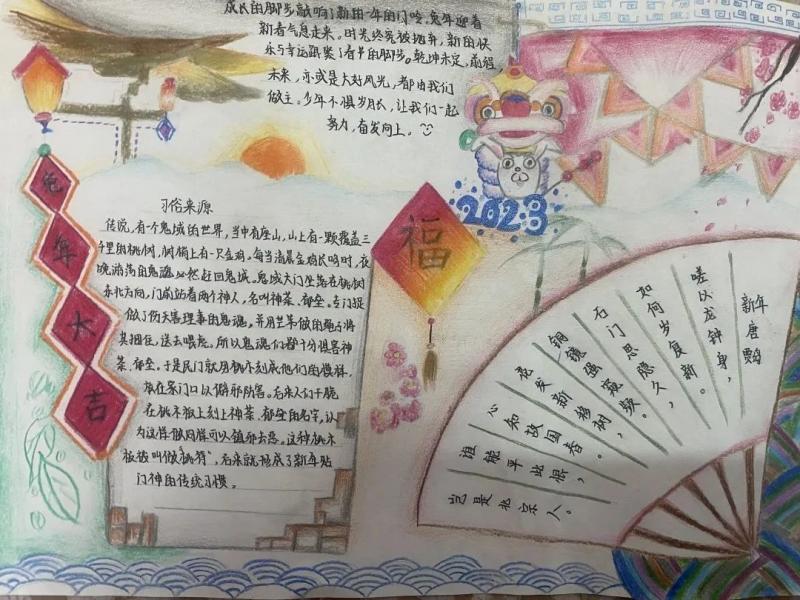 成长的脚步敲响了新的一年的门铃，兔年迎着
新春气息走来。时光终究被抛弃，新的快
乐与幸运跟紧了春节的脚步。乾坤未定，前程
未来，亦或是大好风光，都由我们
做主。少年不惧岁月长，让我们一起
努力，奋发向上。
兔年大吉
2023
福
习俗来源
传说，有个鬼域的世界，当中有座山，山上有一颗覆盖三
千里的桃树，树梢上有一只金鸡，每当清晨金鸡长鸣时，夜
晚游荡的鬼魂必然赶回鬼域。鬼域大门坐落在桃树
东北方向，门前站着两个神人，名叫神荼、郁垒。专门捉
做了伤天害理事的鬼魂，并用芒苇做的绳子将
其捆住，送去喂虎。所以鬼魂们都十分惧害神
荼、郁垒。于是民门就用桃木刻成他们的模样，
放在家门口以僻邪防害。后来人们干脆
在桃木板上刻上神荼、郁垒的名字，认
为这样做同样可以镇邪去恶。这种桃木
板被叫做“桃符”，后来就形成了新年贴
门神的传统习惯。
新年
唐鹦
嗟以龙钟身，
如何岁复新。
石门思隐久，
铜镜强窥频。
花发新移树，
心知故国春。
谁能平此恨，
岂是北宗人。